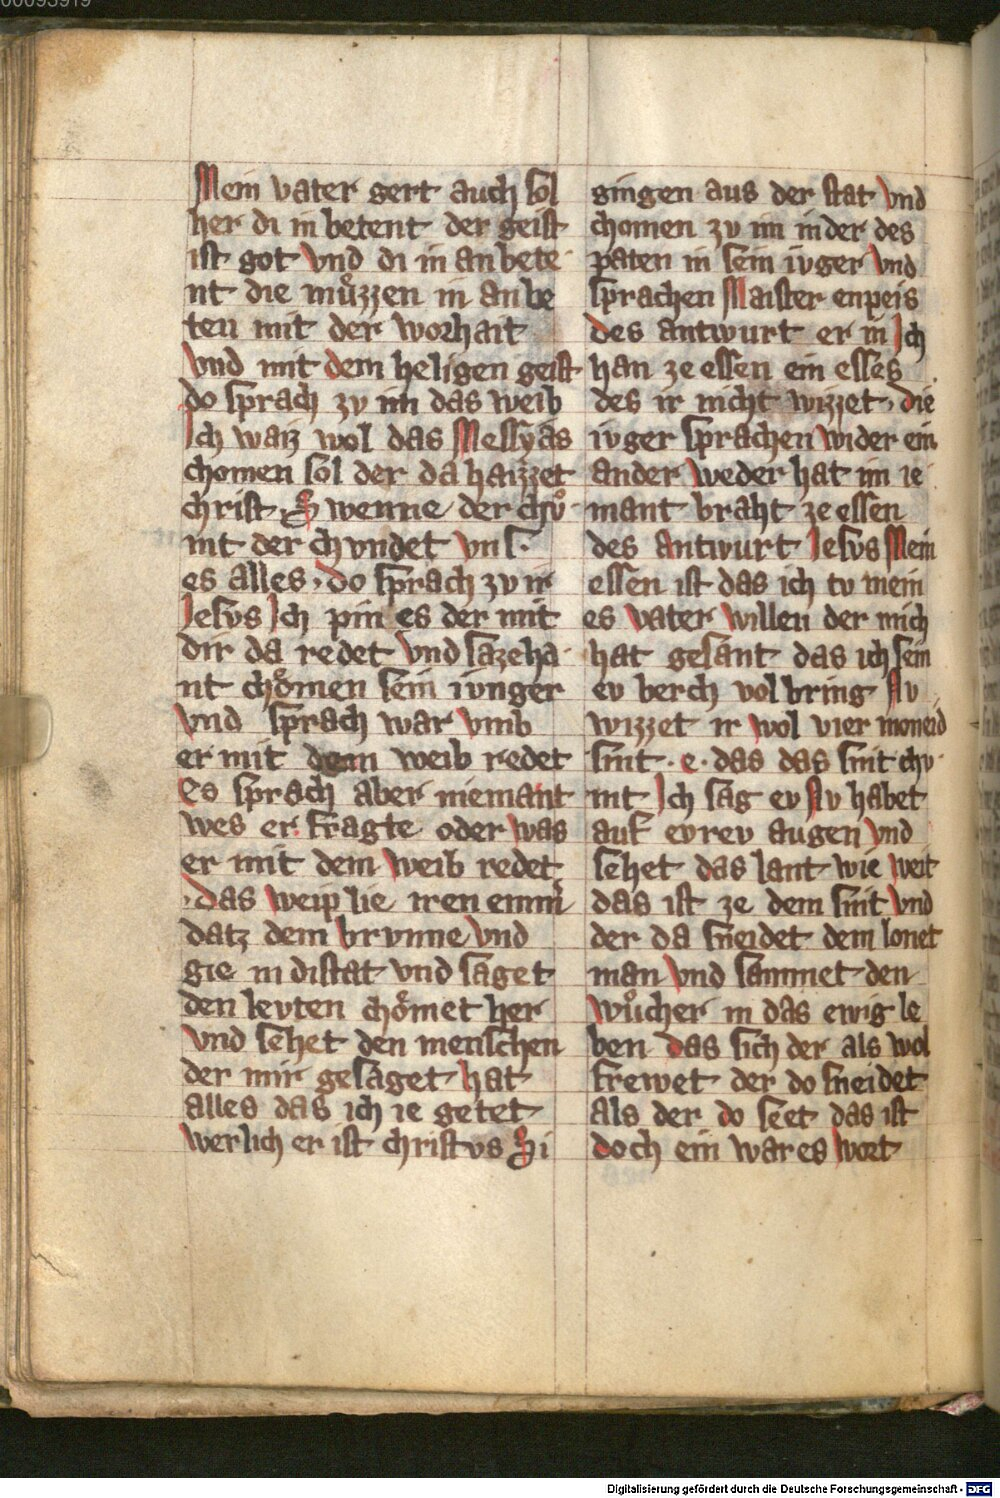 Mein vater gert auch sol
her di in betent der geist
ist got vnd di in an bete
nt die mu̇zzen in an be
ten mit der worhait
vnd mit dem heligen geist
do sprach zv im das weib
Ich waiz wol das Messyas
chomen sol der da haizzet
christ. S wenne der chv̊
mt der chvndet vns
es alles. do sprach zv ir
Jesvs Ich pin es der mit
dir da redet vnd sazeha
nt chȯmen sein ivnger
vnd sprach war vmb
er mit dem weib redet
Es sprach aber niemant
wes er fragte oder was
er mit dem weib redet
.das weip lie iren emmer
datz dem brvnne vnd
gie in di stat vnd saget
den levten chȯmet her
vnd sehet den menschen
der mir gesaget hat
alles das ich ie getet
werlich er ist christvs Si
gingen aus der stat vnd
chomen zv im in der des
paten in sein ivger vnd
sprachen Maister enpeis
des antwurt er in Ich
han ze essen ein esses
des ir nicht wizzet. die
ivger sprachen wider ein
ander weder hat im ie
mant braht ze essen
des antwurt Jesvs Mein
essen ist das ich tv mein
es vater willen der mich
hat gesant das ich sein
ev berch vol bring Nv
wizzet ir wol vier moneid
sint .e. das das snit chv
mt Ich sag ev Nv habet
auf evrev augen vnd
sehet das lant wie weit
das ist ze dem snit vnd
der da sneidet dem lonet
man vnd samnet den
wu̇cher in das ewig le
ben das sich der als wol
frewet der do sneidet
als der do seet das ist
doch ein wares wort
Digitalisierung gefördert durch die Deutsche Forschungsgemeinschaft - DFG